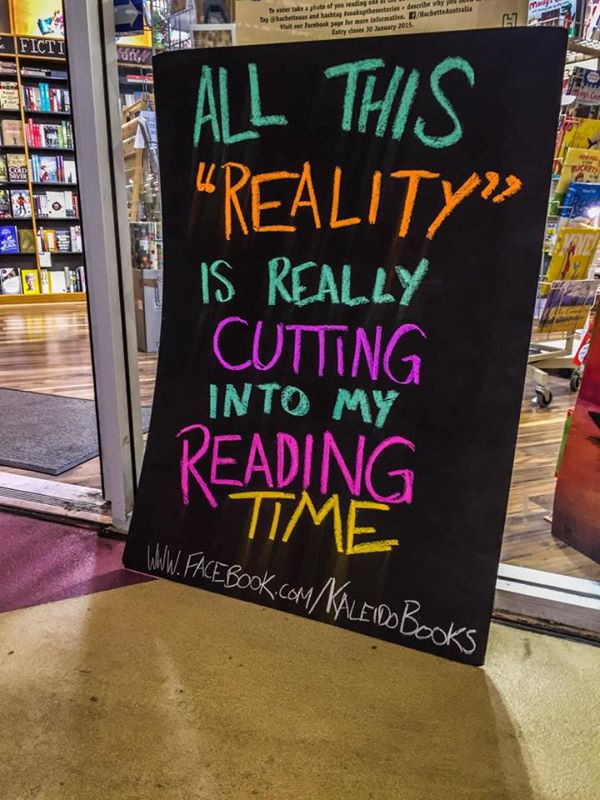 To enter take a photo of you reading one of the
Tag @hachetteaus and hashtag #soakupthestories + describe why you
Visit our Facebook page for more information. /HachetteAustralia
Entry closes 30 January 2015.
FICTI
ALL THIS
"REALITY"
IS REALLY
CUTTING
INTO MY
READING
TIME
WWW.FACEBOOK.COM/KALEIDOBOOKS